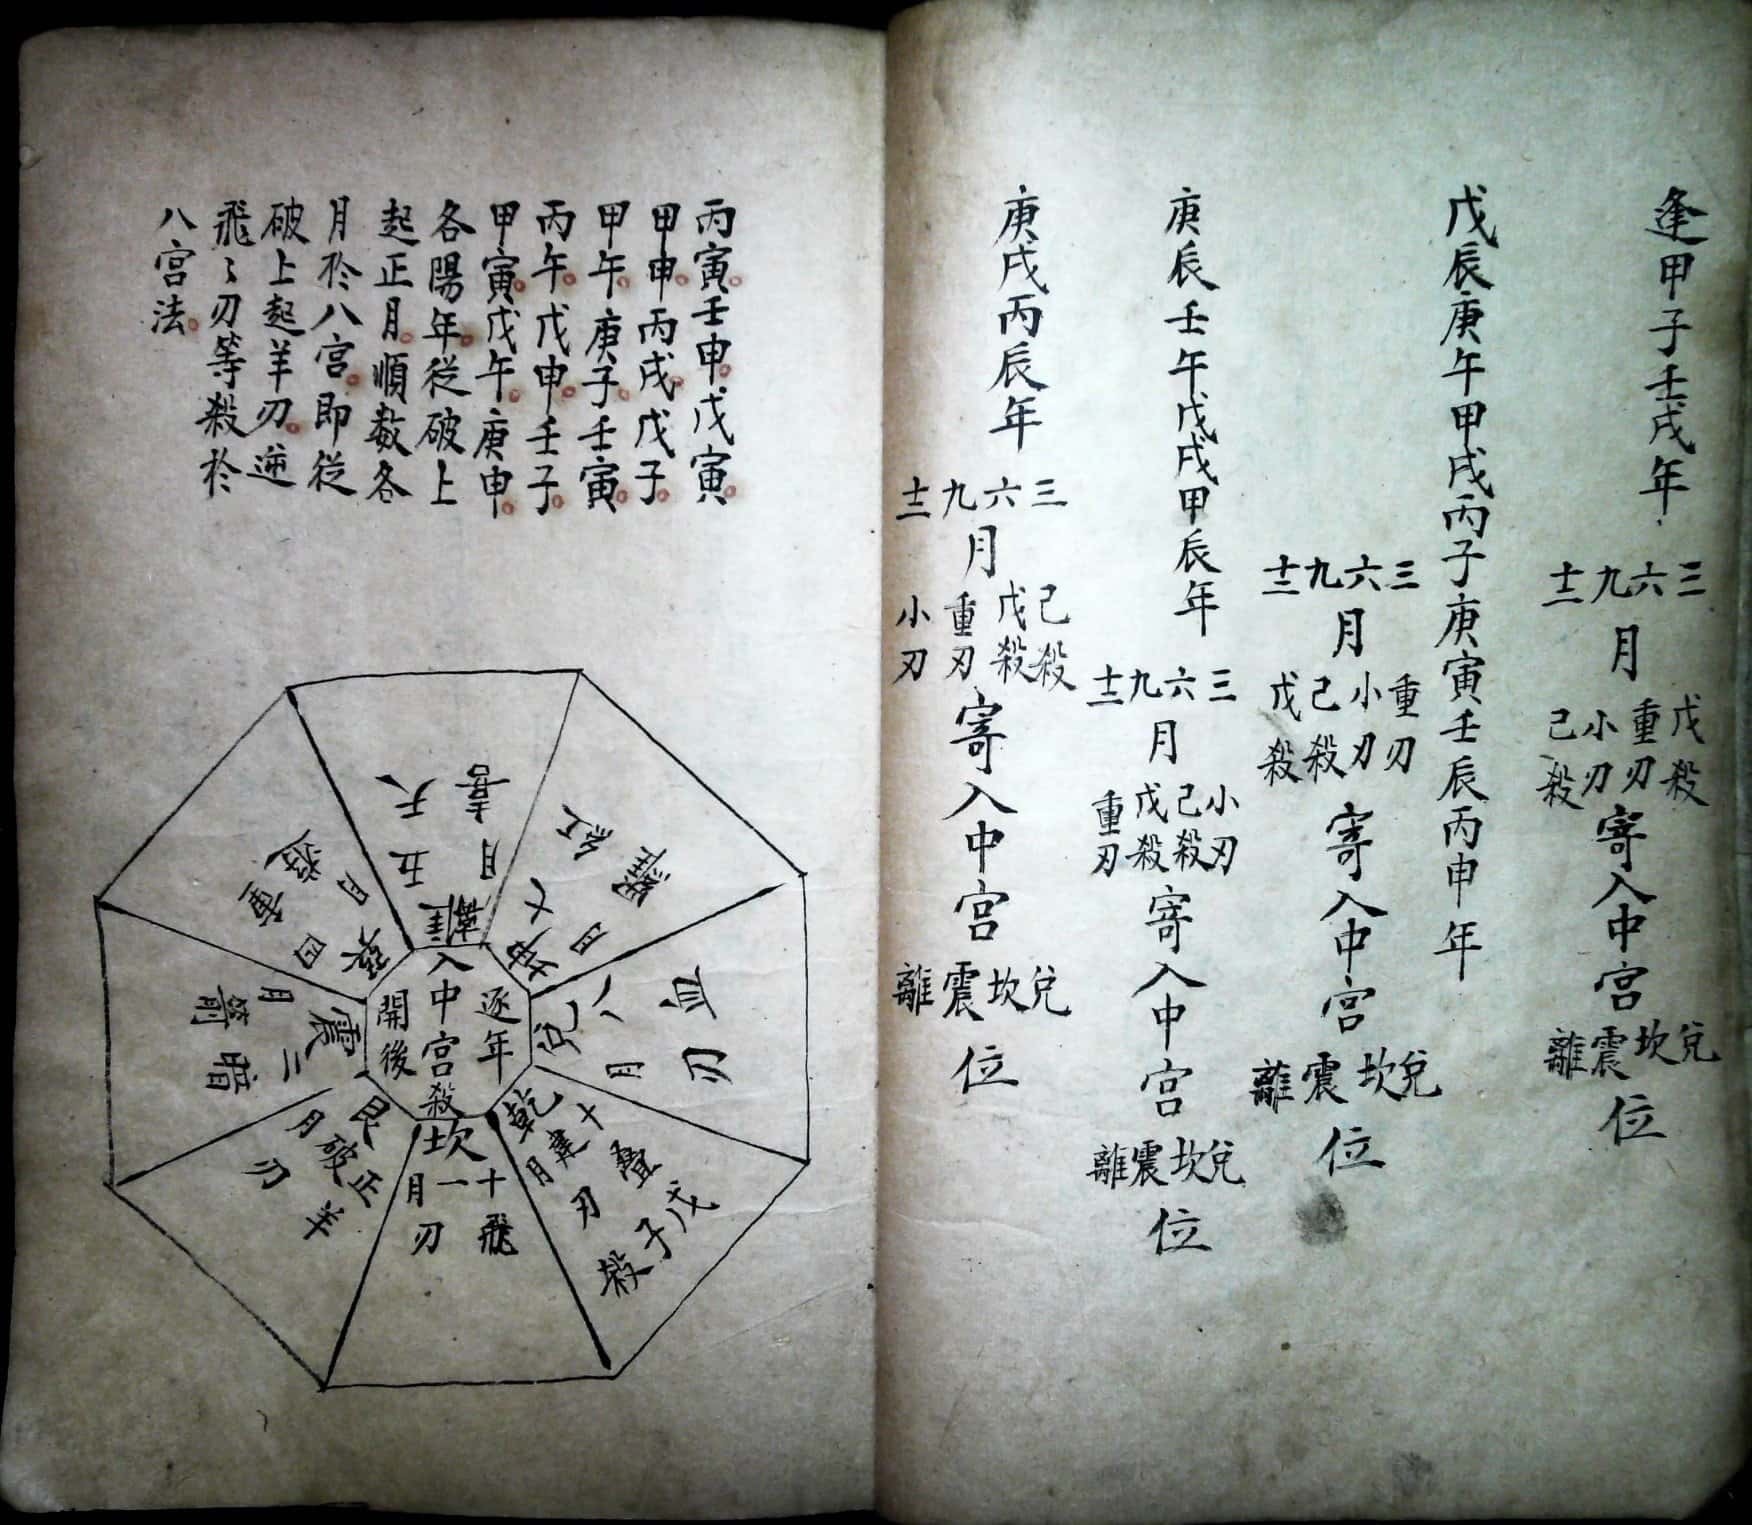 逢甲子壬戌年
三六九十二
月
戊殺重刃小刃己殺
寄入中宮
兌坎震離
位
戊辰庚午甲戌丙子庚寅壬辰丙申年
三六九十二
月
重刃小刃己殺戊殺
寄入中宮
兌坎震離
位
庚辰壬午戊戌甲辰年
三六九十二
月
小刃己殺戊殺重刃
寄入中宮
兌坎震離
位
庚戌丙辰年
三六九十二
月
己殺戊殺重刃小刃
寄入中宮
兌坎震離
位
丙寅壬申戊寅
甲申丙戌戊子
甲午庚子壬寅
丙午戊申壬子
甲寅戊午庚申
各陽年從破上
起正月順數各
月於八宮即從
破上起羊刃逆
飛〻刃等殺於
八宮法
逐年
入中宮殺
開後
離
五月
天喜
坤
七月
紅
兌
八月
血刃
乾
十月
建
疊刃
戊子殺
坎
十一月
飛刃
艮
正月
破
羊刃
震
二月
暗箭
四月